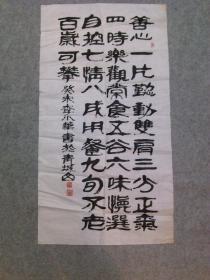 善心一片勤動雙肩三分正氣
四時樂觀常食五谷六味慎選
自控七情八戒用餐九旬不老
百歲可攀 癸未 華書於青城